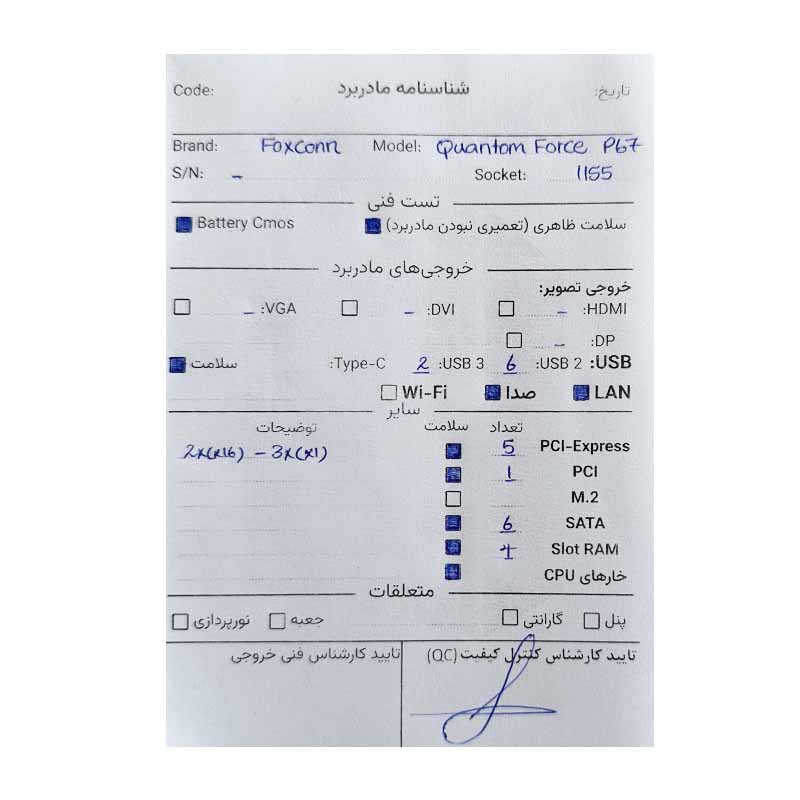 Code: شناسنامه مادربرد تاریخ:
Brand: Foxconn Model: Quantom Force P67
S/N: - Socket: 1155
تست فنی
سلامت ظاهری (تعمیری نبودن مادربرد) Battery Cmos
خروجی‌های مادربرد
خروجی تصویر:
HDMI: - DVI: - VGA: -
DP: -
USB: USB 2: 6 USB 3: 2 Type-C: سلامت
LAN صدا Wi-Fi
سایر
تعداد سلامت توضیحات
PCI-Express 5 2x(x16) - 3x(x1)
PCI 1
M.2
SATA 6
Slot RAM 4
خارهای CPU
متعلقات
پنل گارانتی جعبه نورپردازی
تایید کارشناس کنترل کیفیت (QC) تایید کارشناس فنی خروجی